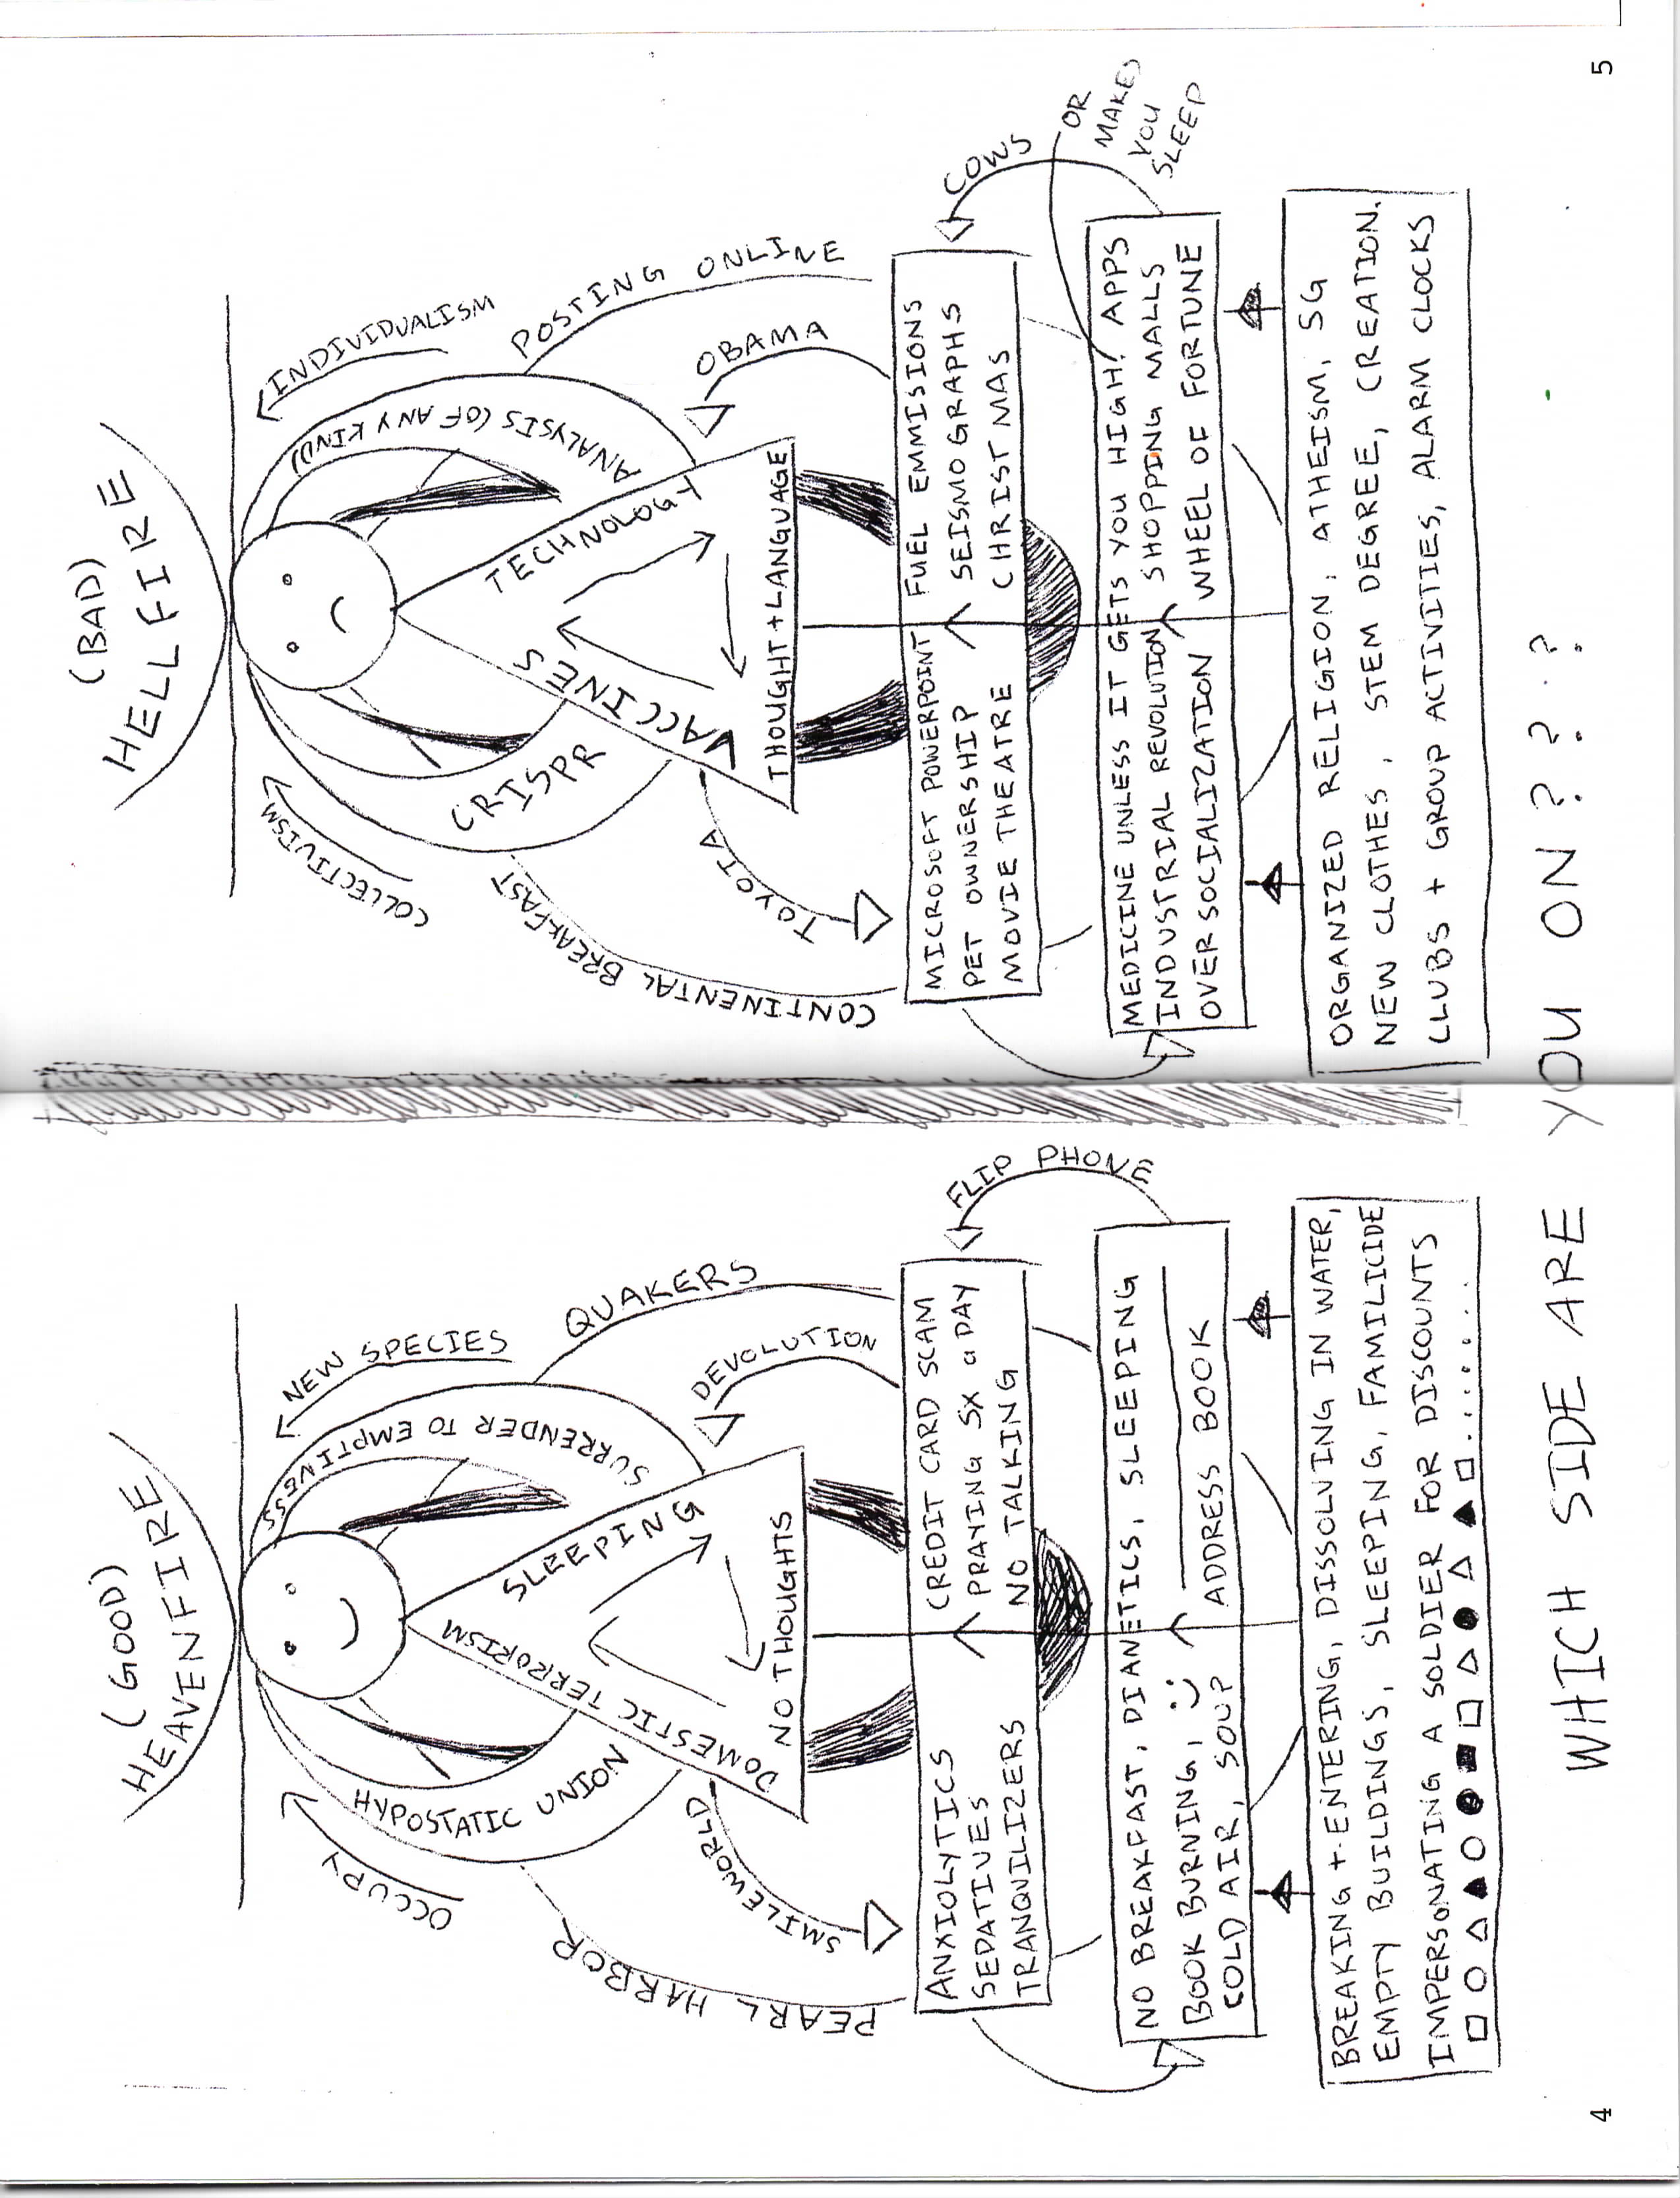 (GOOD)
HEAVENFIRE
NEW SPECIES
OCCUPY
SURRENDER TO EMPTINESS
HYPOSTATIC UNION
QUAKERS
PEARL HARBOR
SLEEPING
DOMESTIC TERRORISM
NO THOUGHTS
DEVOLUTION
SMILEWORLD
ANXIOLYTICS CREDIT CARD SCAM
SEDATIVES PRAYING 5X a DAY
TRANQUILIZERS NO TALKING
FLIP PHONE
NO BREAKFAST, DIANETICS, SLEEPING
BOOK BURNING, :)
COLD AIR, SOUP ADDRESS BOOK
BREAKING + ENTERING, DISSOLVING IN WATER,
EMPTY BUILDINGS, SLEEPING, FAMILICIDE
IMPERSONATING A SOLDIER FOR DISCOUNTS
(BAD)
HELLFIRE
INDIVIDUALISM
COLLECTIVISM
ANALYSIS (OF ANY KIND)
CRISPR
POSTING ONLINE
CONTINENTAL BREAKFAST
TECHNOLOGY
VACCINES
THOUGHT + LANGUAGE
OBAMA
TOYOTA
MICROSOFT POWERPOINT FUEL EMMISIONS
PET OWNERSHIP SEISMOGRAPHS
MOVIE THEATRE CHRISTMAS
COWS
OR
MAKES
YOU
SLEEP
MEDICINE UNLESS IT GETS YOU HIGH, APPS
INDUSTRIAL REVOLUTION SHOPPING MALLS
OVERSOCIALIZATION WHEEL OF FORTUNE
ORGANIZED RELIGION, ATHEISM, 5G
NEW CLOTHES, STEM DEGREE, CREATION.
CLUBS + GROUP ACTIVITIES, ALARM CLOCKS
WHICH SIDE ARE YOU ON????
4
5